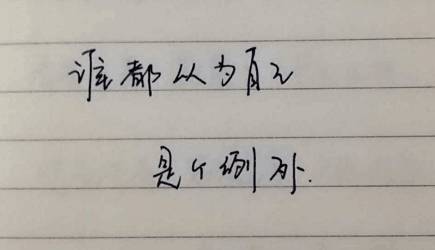 谁都以为自己
是个例外.